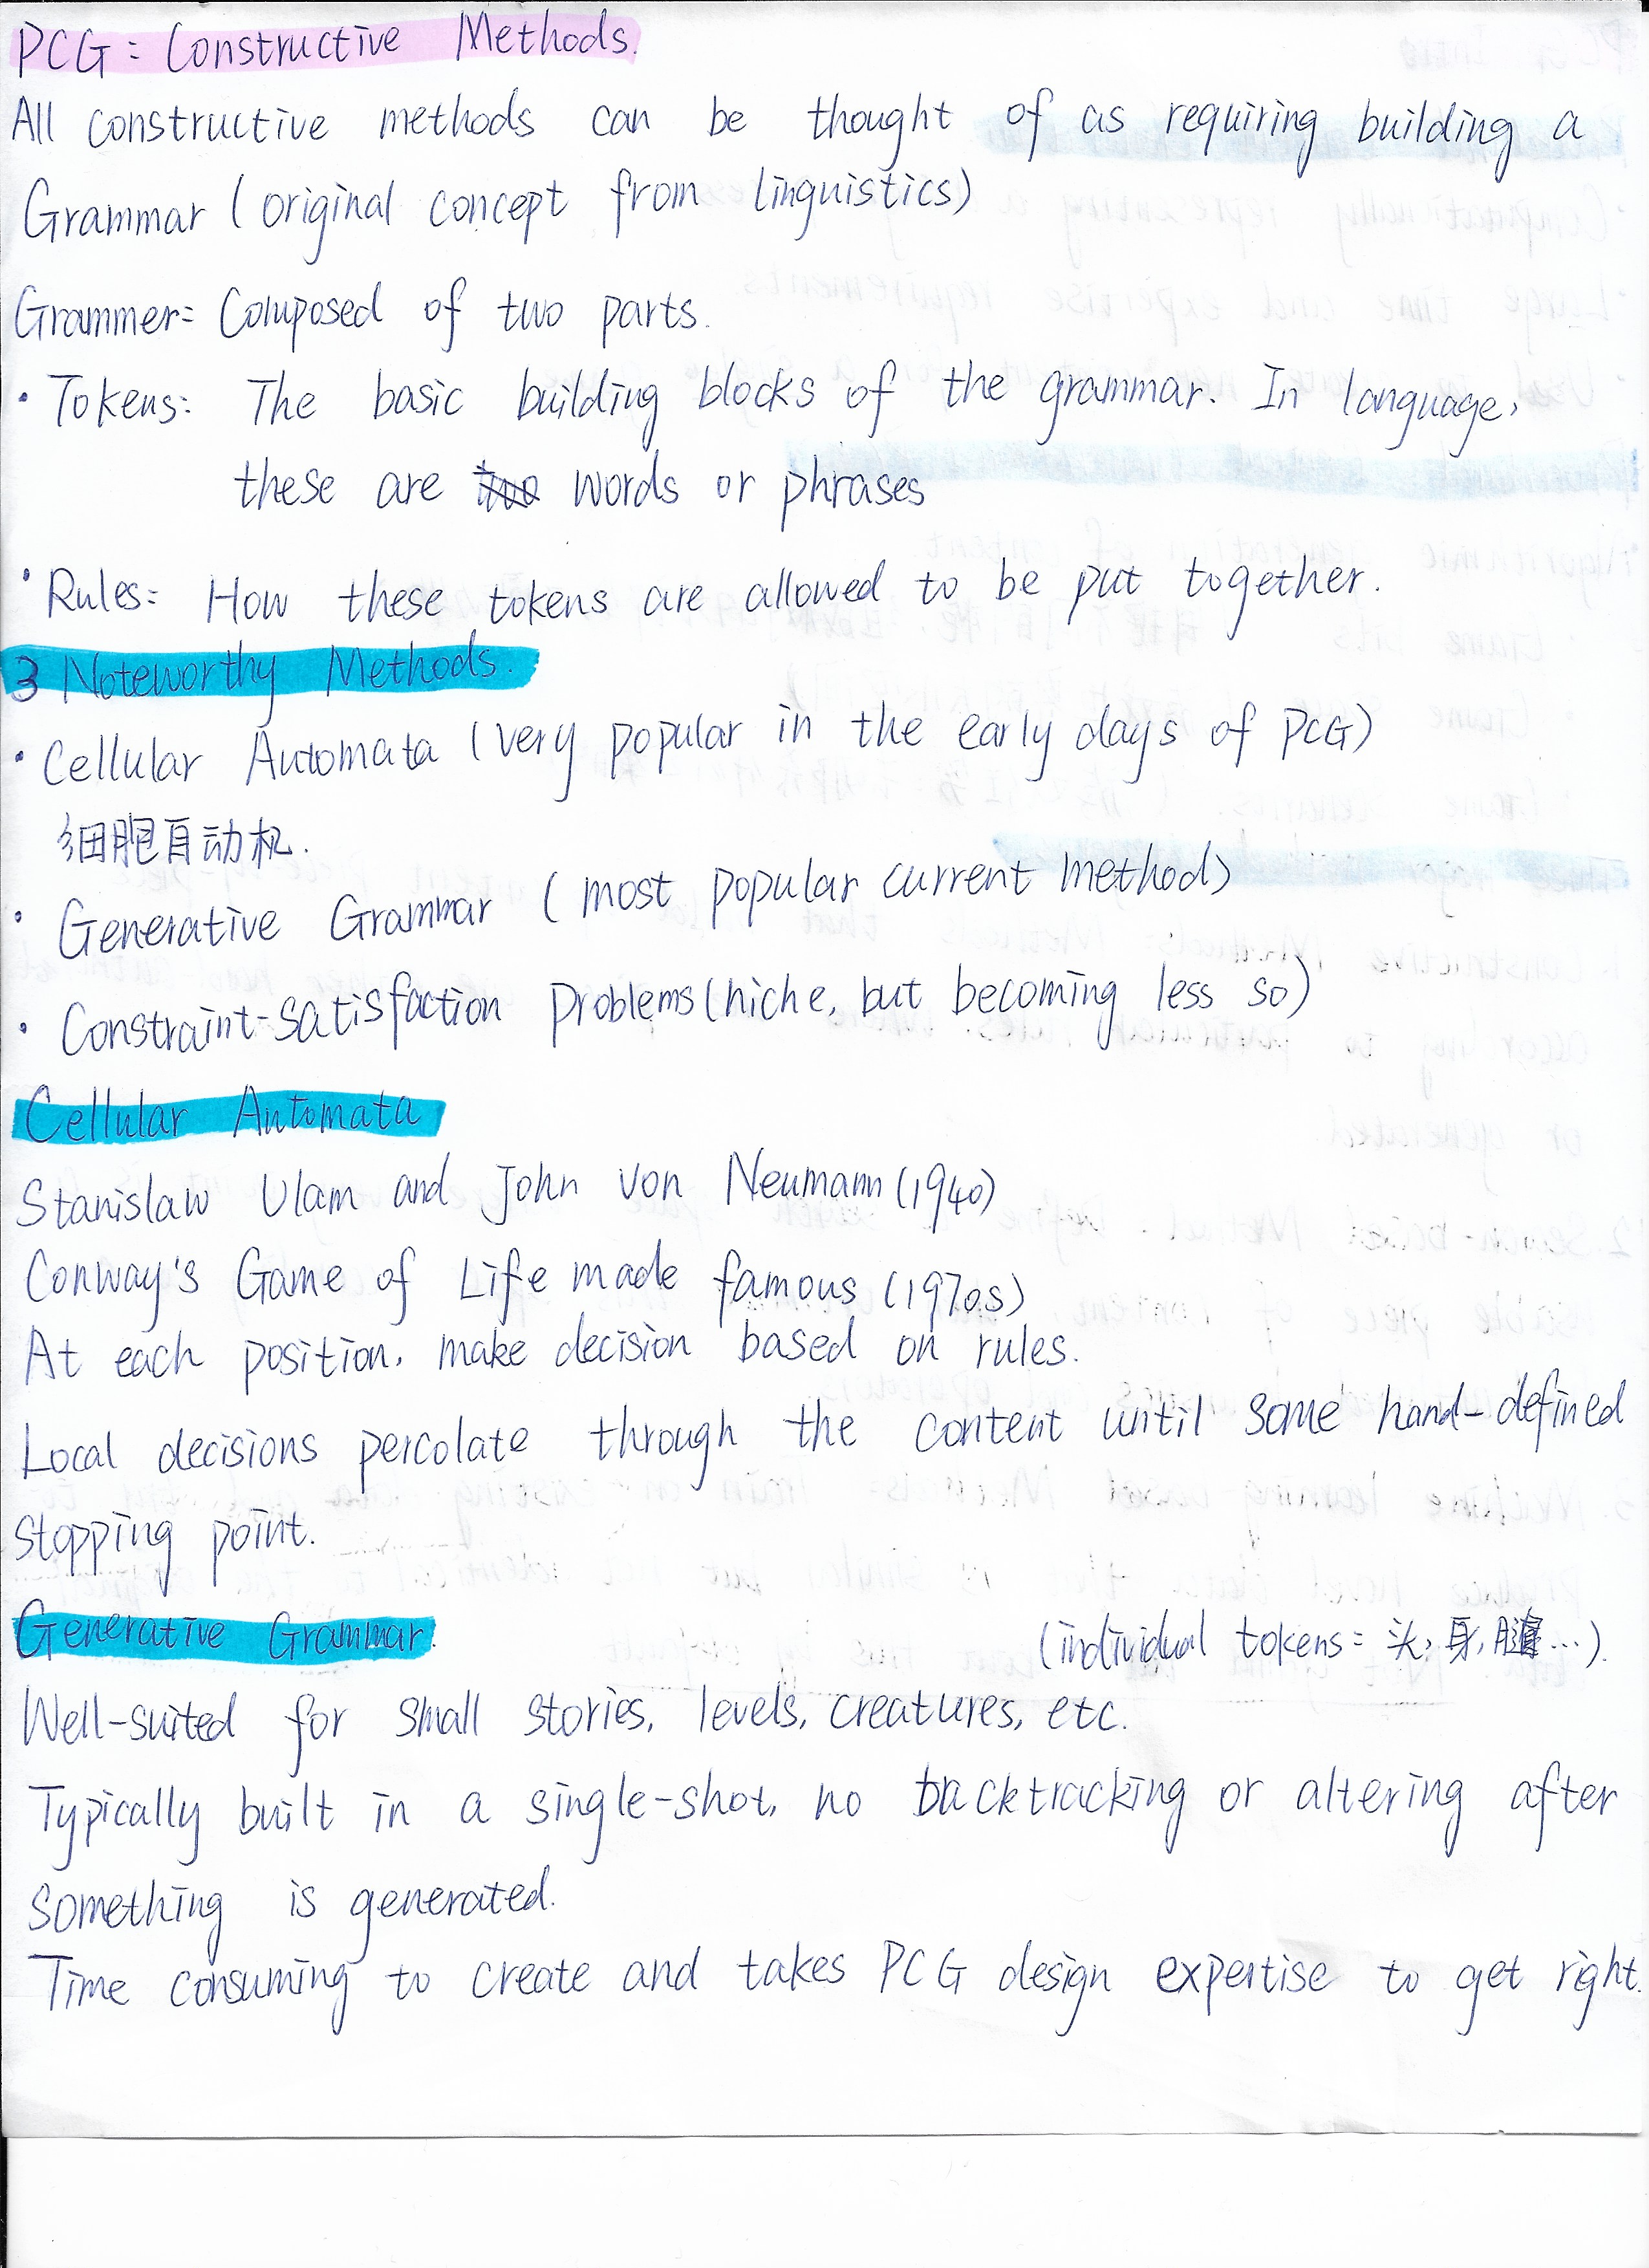 PCG: Constructive Methods.
All constructive methods can be thought of as requiring building a
Grammar (original concept from linguistics)
Grammer: Composed of two parts.
• Tokens: The basic building blocks of the grammar. In language,
these are words or phrases
• Rules: How these tokens are allowed to be put together.
3 Noteworthy Methods.
• Cellular Automata (very popular in the early days of PCG)
细胞自动机.
• Generative Grammar (most popular current method)
• Constraint-satisfaction Problems (niche, but becoming less so)
Cellular Automata
Stanislaw Ulam and John von Neumann (1940)
Conway's Game of Life made famous (1970s)
At each position, make decision based on rules.
Local decisions percolate through the content until some hand-defined
stopping point.
Generative Grammar. (individual tokens: 头, 身, 腿...).
Well-suited for small stories, levels, creatures, etc.
Typically built in a single-shot, no backtracking or altering after
something is generated.
Time consuming to create and takes PCG design expertise to get right.